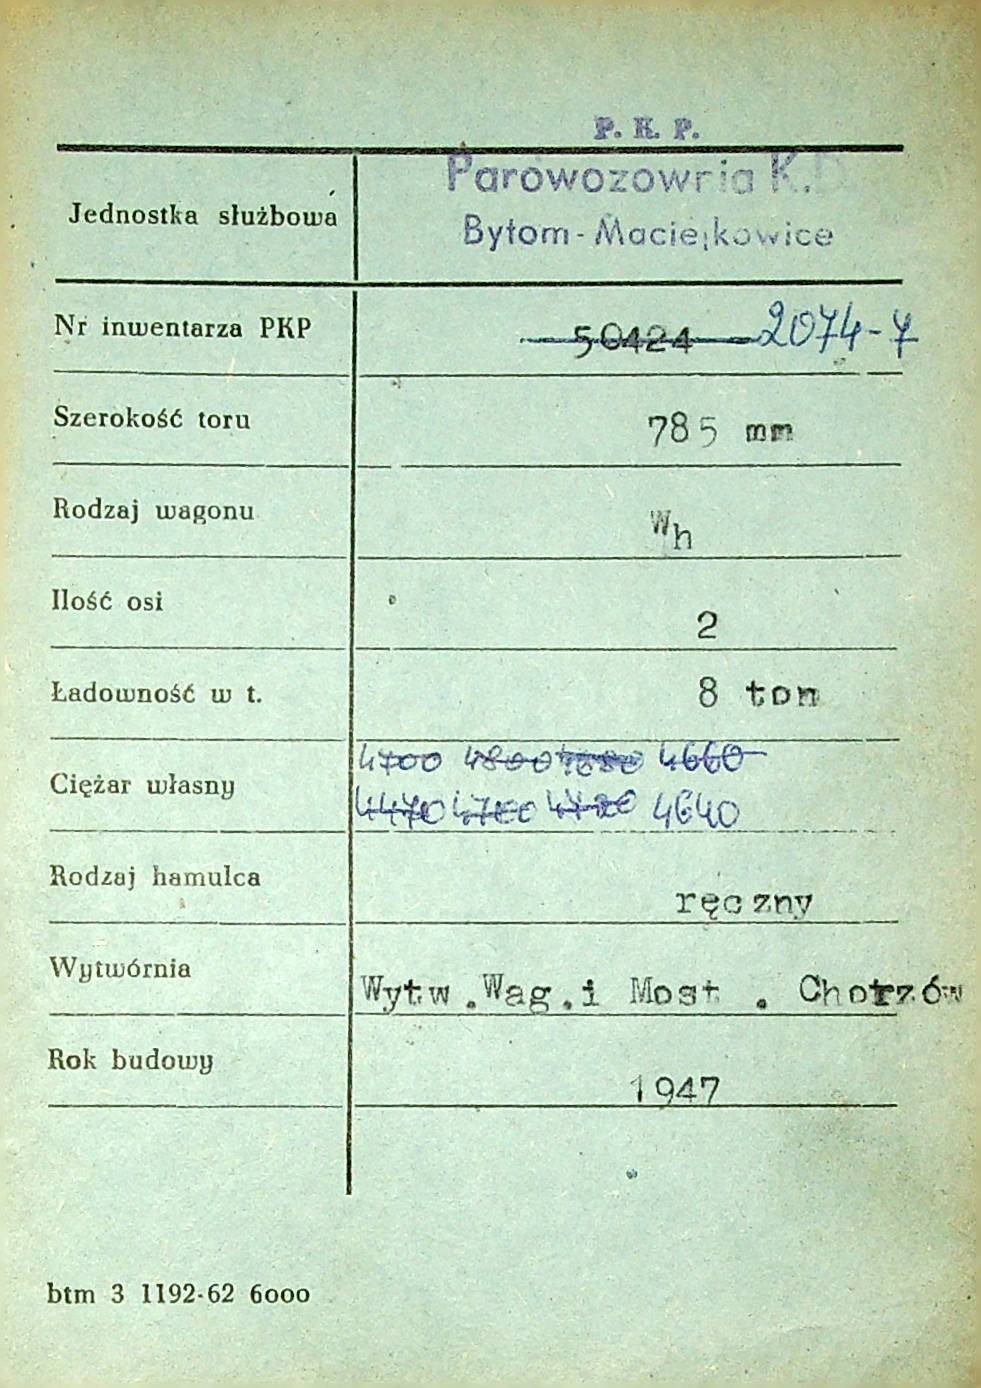 P. K. P.
Parowozownia K.D
Jednostka służbowa
Bytom-Maciejkowice
Nr inwentarza PKP 50424 2074-7
Szerokość toru 785 mm
Rodzaj wagonu Wh
Ilość osi 2
Ładowność w t. 8 ton
4700 4800 4660
Ciężar własny
4470 4700 4720 4640
Rodzaj hamulca ręczny
Wytwórnia Wytw.Wag.i Most . Chorzów
Rok budowy 1947
btm 3 1192-62 6000